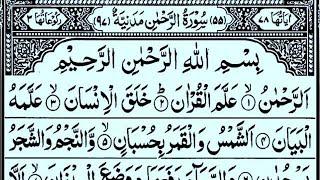 اٰیَاتُهَا ۷۸ (۵۵) سُوْرَةُ الرَّحْمٰنِ مَدَنِیَّةٌ (۹۷) رُكُوْعَاتُهَا ۳
بِسْمِ اللّٰهِ الرَّحْمٰنِ الرَّحِیْمِ
اَلرَّحْمٰنُ ۱ عَلَّمَ الْقُرْاٰنَ ۲ خَلَقَ الْاِنْسَانَ ۳ عَلَّمَهُ
الْبَیَانَ ۴ اَلشَّمْسُ وَالْقَمَرُ بِحُسْبَانٍ ۵ وَّالنَّجْمُ وَالشَّجَرُ